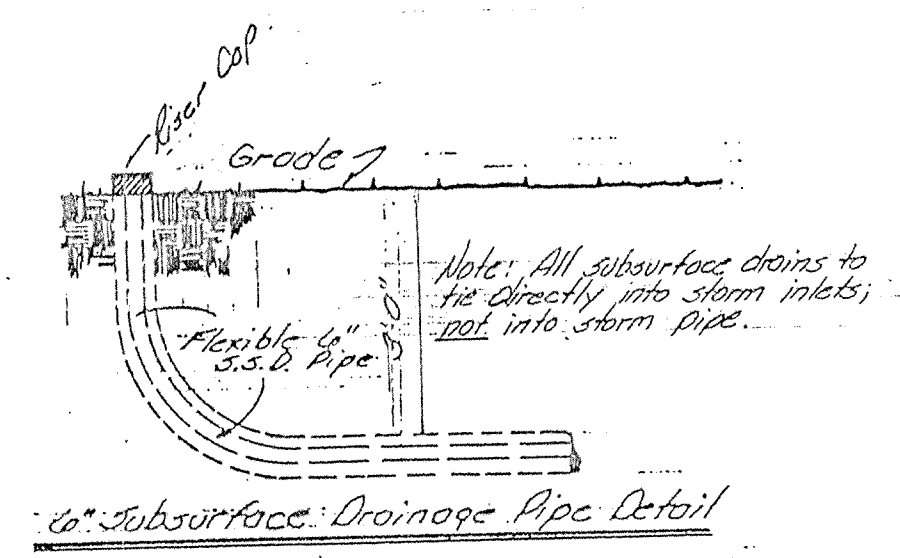 Riser Cap
Grade
Note: All subsurface drains to
tie directly into storm inlets;
not into storm pipe.
3'-0"
Flexible 6"
S.S.D. Pipe
6" Subsurface Drainage Pipe Detail